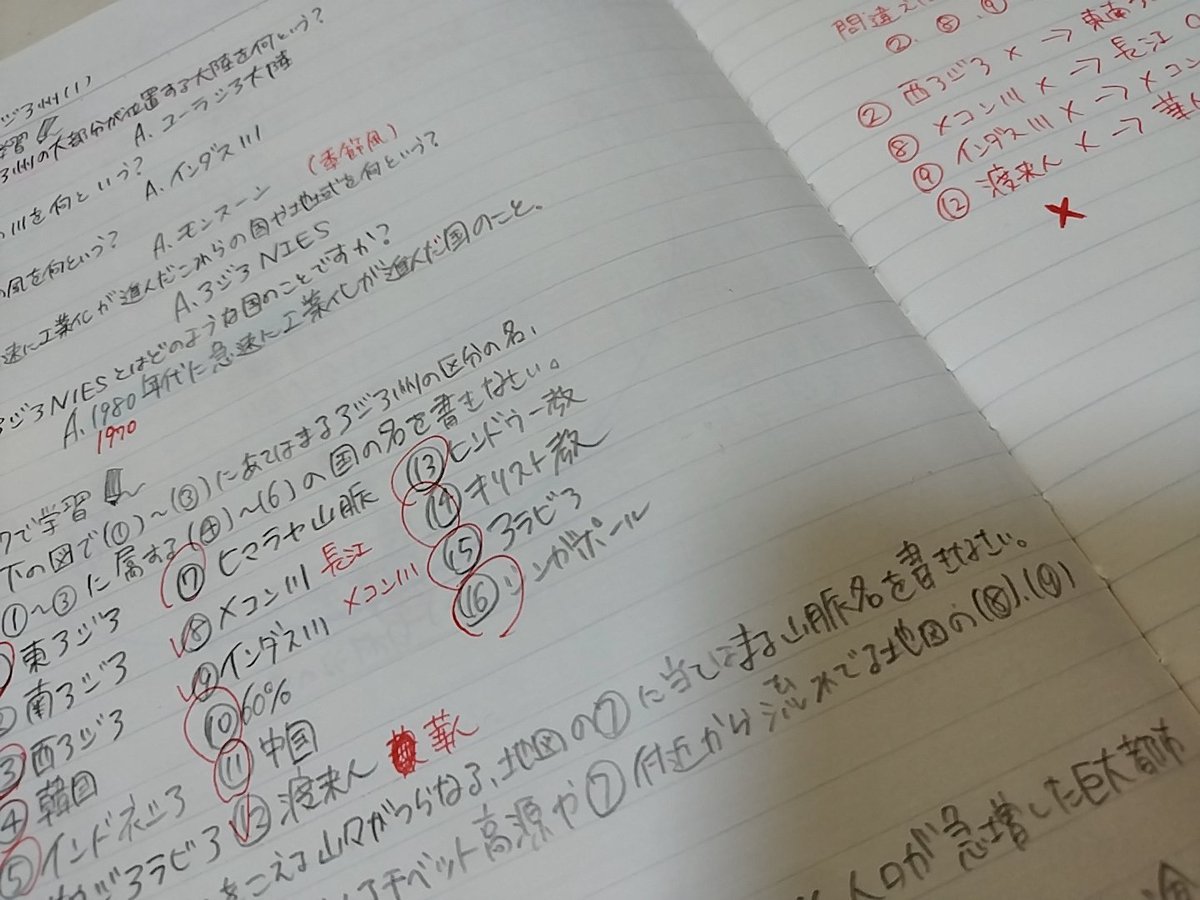 ジア州(1)
学習
ア州の大部分が位置する大陸を何という?
A. ユーラシア大陸
川を何という?
A. インダス川
風を何という?
A. モンスーン (季節風)
速に工業化が進んだこれらの国や地域を何という?
A. アジア NIES
アジア NIESとはどのような国のことですか?
A. 1980年代に急速に工業化が進んだ国のこと、
1970
クで学習
下の図で(①)~(③)にあてはまるアジア州の区分の名、
①~③に属する(④)~(6)の国の名を書きなさい。
東アジア
② 南アジア
③ 西アジア
④ 韓国
⑤ インドネシア
サウジアラビア
⑦ ヒマラヤ山脈
⑧ メコン川 長江
⑨ インダス川 メコン川
⑩ 60%
⑪ 中国
⑫ 渡来人 華人
⑬ ヒンドゥー教
⑭ キリスト教
⑮ アラビア
⑯ シンガポール
をこえる山々がつらなる、地図の⑦に当てはまる山脈名を書きなさい。
チベット高原や⑦付近から流れでる地図の(⑧)、(⑨)
人口が急増した巨大都市
間違え
②、⑧、⑨
② 西アジア × → 東南
⑧ メコン川 × → 長江
⑨ インダス川 × → メコン
⑫ 渡来人 × → 華
×